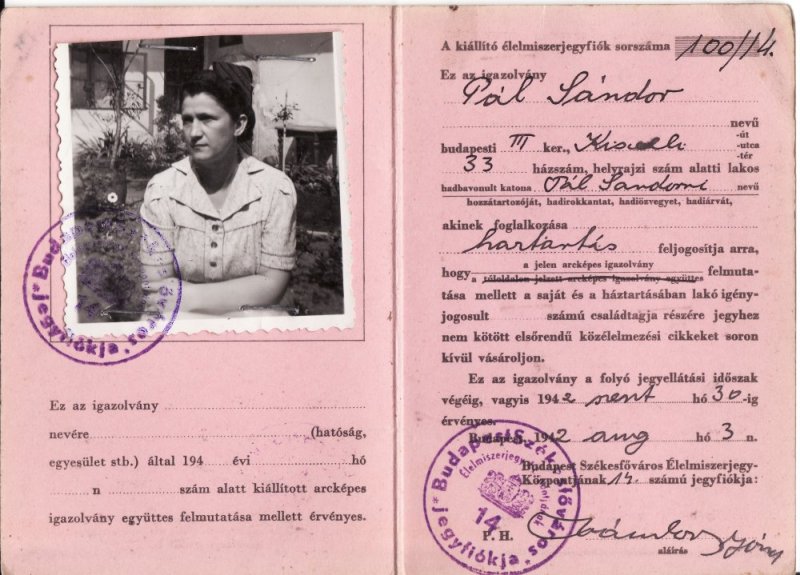 Ez az igazolvány
nevére (hatóság,
egyesület stb.) által 194 évi hó
n szám alatt kiállított arcképes
igazolvány együttes felmutatása mellett érvényes.
Bud
jegyfiókja
A kiállító élelmiszerjegyfiók sorszáma 100/14.
Ez az igazolvány
Pál Sándor
nevű
budapesti III ker., Kiscelli -út
-utca
-tér
33 házszám, helyrajzi szám alatti lakos
hadbavonult katona Pál Sándorné nevű
hozzátartozóját, hadirokkantat, hadiözvegyet, hadiárvát,
akinek foglalkozása
háztartás feljogosítja arra,
a jelen arcképes igazolvány
hogy a túloldalon jelzett arcképes igazolvány együttes felmuta-
tása mellett a saját és a háztartásában lakó igény-
jogosult számú családtagja részére jegyhez
nem kötött elsőrendű közélelmezési cikkeket soron
kívül vásároljon.
Ez az igazolvány a folyó jegyellátási időszak
végéig, vagyis 1942 szept hó 30-ig
érvényes.
Budapest, 1942 aug hó 3 n.
Budapest Székesfőváros Élelmiszerjegy-
Központjának 14 számú jegyfiókja:
P. H.
aláírás
Budapest Székesfőváros
Élelmiszerjegy
14
jegyfiókja